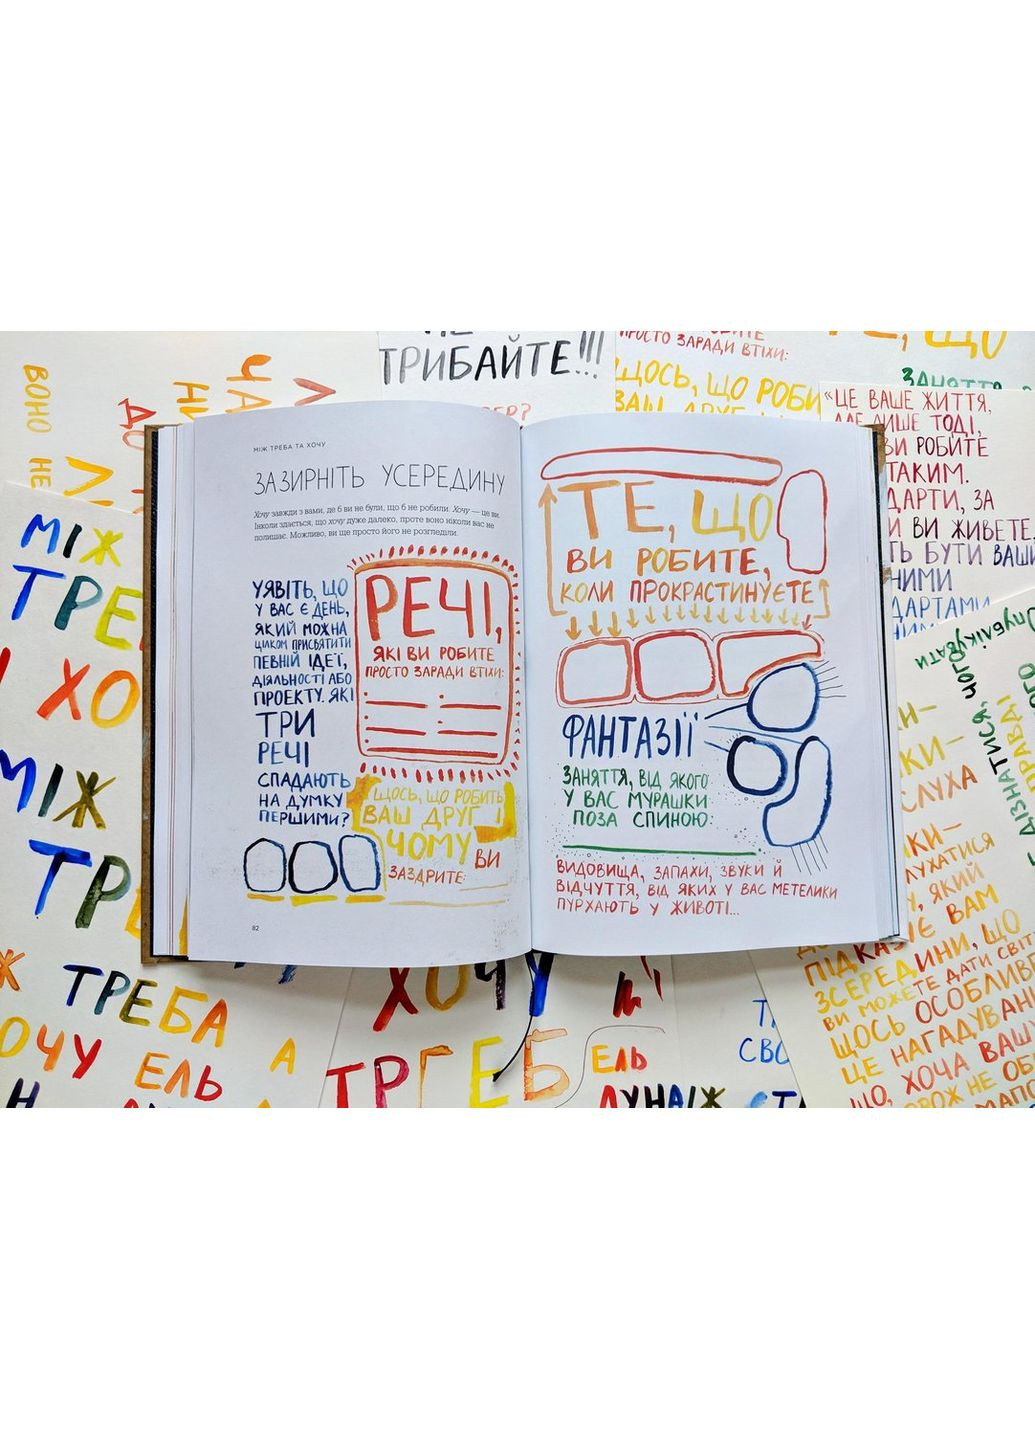 МІЖ ТРЕБА ТА ХОЧУ
ЗАЗИРНІТЬ УСЕРЕДИНУ
Хочу завжди з вами, де б ви не були, що б не робили. Хочу — це ви.
Інколи здається, що хочу дуже далеко, проте воно ніколи вас не
полишає. Можливо, ви ще просто його не розгледіли.
УЯВІТЬ, ЩО
У ВАС Є ДЕНЬ,
ЯКИЙ МОЖНА
ЦІЛКОМ ПРИСВЯТИТИ
ПЕВНІЙ ІДЕЇ,
ДІЯЛЬНОСТІ АБО
ПРОЕКТУ. ЯКІ
ТРИ
РЕЧІ
СПАДАЮТЬ
НА ДУМКУ
ПЕРШИМИ?
РЕЧІ,
ЯКІ ВИ РОБИТЕ
ПРОСТО ЗАРАДИ ВТІХИ:
ЩОСЬ, ЩО РОБИТЬ
ВАШ ДРУГ І
ЧОМУ ВИ
ЗАЗДРИТЕ:
82
ТЕ, ЩО
ВИ РОБИТЕ,
КОЛИ ПРОКРАСТИНУЄТЕ
ФАНТАЗІЇ
ЗАНЯТТЯ, ВІД ЯКОГО
У ВАС МУРАШКИ
ПОЗА СПИНОЮ:
ВИДОВИЩА, ЗАПАХИ, ЗВУКИ Й
ВІДЧУТТЯ, ВІД ЯКИХ У ВАС МЕТЕЛИКИ
ПУРХАЮТЬ У ЖИВОТІ...
ТРИБАЙТЕ!!!
ПРОСТО ЗАРАДИ ВТІХИ:
ЩОСЬ, ЩО РОБИ
ВАШ ДРУГ
ЩО
ЗАНЯТТЯ
«ЦЕ ВАШЕ ЖИТТЯ,
АЛЕ ЛИШЕ ТОДІ,
ВИ РОБИТЕ
ТАКИМ.
ДАРТИ, ЗА
И ВИ ЖИВЕТЕ.
ТЬ БУТИ ВАШИ
НИМИ
ДАРТАМИ
ВОНО НЕ
МІЖ
ТРЕ
ХО
МІЖ
ТР
Ж ТРЕБА
ОЧУ ЕЛЬ А
ХОЧУ
ЕЛЬ
ЛУНА
СВО
СЛУХА
ЛУХАТИСЯ
, ЯКИЙ
ПІДКАЗУЄ ВАМ
ЗСЕРЕДИНИ, ЩО
ВИ МОЖЕТЕ ДАТИ СВІТ
ЩОСЬ ОСОБЛИВЕ
ЦЕ НАГАДУВАН
ЩО, ХОЧА ВАШ